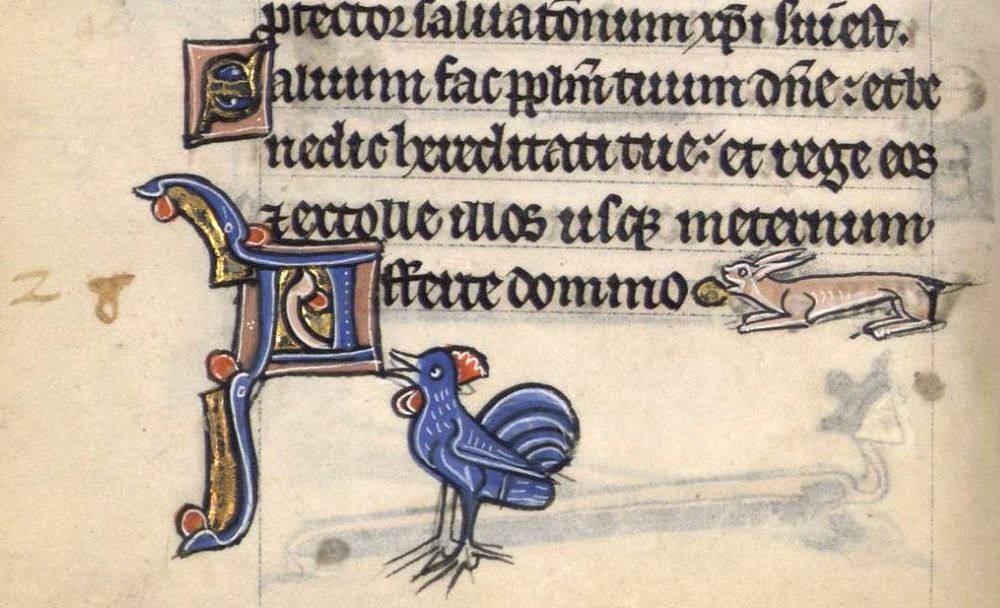 ptector saluatōnum xp̄i sui est.
Saluum fac pplm̄ tuum dn̄e : et be
nedic hereditati tue : et rege eos
⁊ extolle illos usqꝫ in eternum
Afferte domino
28